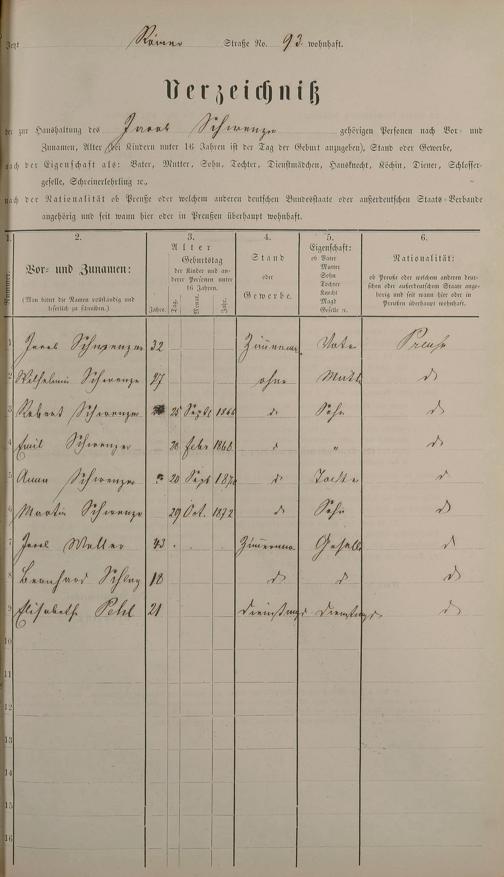 Jetzt Römer Straße No. 93 wohnhaft.
Verzeichniß
der zur Haushaltung des Jacob Schwenzer gehörigen Personen nach Vor- und
Zunamen, Alter (bei Kindern unter 16 Jahren ist der Tag der Geburt anzugeben), Stand oder Gewerbe,
nach der Eigenschaft als: Vater, Mutter, Sohn, Tochter, Dienstmädchen, Hausknecht, Köchin, Diener, Schlosser-
geselle, Schreinerlehrling ꝛc.,
nach der Nationalität ob Preuße oder welchem anderen deutschen Bundesstaate oder außerdeutschen Staats-Verbande
angehörig und seit wann hier oder in Preußen überhaupt wohnhaft.
1. 2. 3. 4. 5. 6.
Nummer.
Vor- und Zunamen:
(Man bittet die Namen vollständig und
leserlich zu schreiben.)
Alter
Jahre.
Geburtstag
der Kinder und an-
derer Personen unter
16 Jahren.
Tag. Monat. Jahr.
Stand
oder
Gewerbe.
Eigenschaft:
ob Vater
Mutter
Sohn
Tochter
Knecht
Magd
Geselle ꝛc.
Nationalität:
ob Preuße oder welchem anderen deut-
schen oder außerdeutschen Staate ange-
hörig und seit wann hier oder in
Preußen überhaupt wohnhaft.
1 Jacob Schwenzer 32 Zimmerma Vater Preuße
2 Wilhelmin Schwenze 27 ohne Mutt do
3 Robert Schwenzer 25 Sept 1866 do Sohn do
4 Emil Schwenzer 20 Febr 1868 do " do
5 Anna Schwenzer 20 Sept 187 do Tochte do
6 Martin Schwenze 29 Oct. 1872 do Sohn do
7 Jacob Walter 43 Zimmerma Gesell do
8 Bernhard Schlag 18 do do do
9 Elisabeth Pehl 21 Dienstmgd Dienstmgd do
10
11
12
13
14
15
16